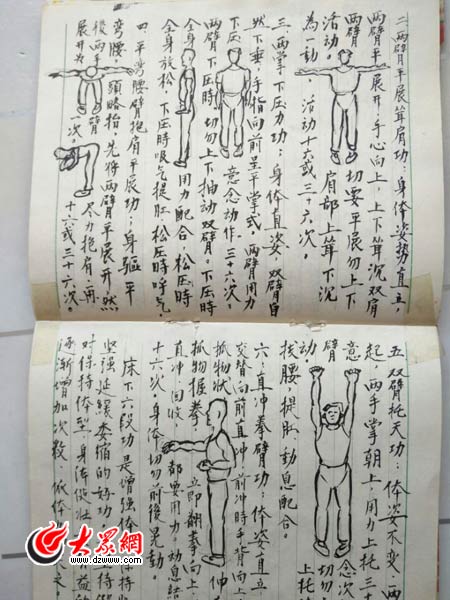 二、两臂平展耸肩功：身体姿势直立，
两臂平展开，手心向上，上下耸沉双肩
两臂切要平展勿上下
活动。肩部上耸下沉
為动，活动十六或三十六次。
三、两掌下压力功：身体直姿，双臂自
状下垂，手指向前呈平掌式，两臂用力
下压 意念动作。三十六次。
两臂，下压時，切勿上下抽动双臂。下压時
全身放松，下压時吸气提肛，松压時呼气，
全身 用力配合，松压時
四、平弯腰臂抱肩平展功；身躯平
弯腰，頭略抬，先将两臂平展开，然
後两手臂 尽力抱肩，再
展开为一次。十六或三十六次。
五、双臂托天功：体姿不变，两
起，两手掌朝上，用力上托三十
意念次
臂 切勿
动 上托
找腰，提肛，动息配合。
六、直冲拳臂功：体姿直立，
交替向前直冲，前冲時手背向上，
抓物状 伸
抓物握拳 立即翻拳向上，
直冲，回收，都要用力，动息結
十六次，身体切勿前後晃动。
床下六段功，是增强体
坚强延緩萎缩的好功
对保持体型，身体健壮
逐漸增加次数，依体
大眾網
www.dzwww.com